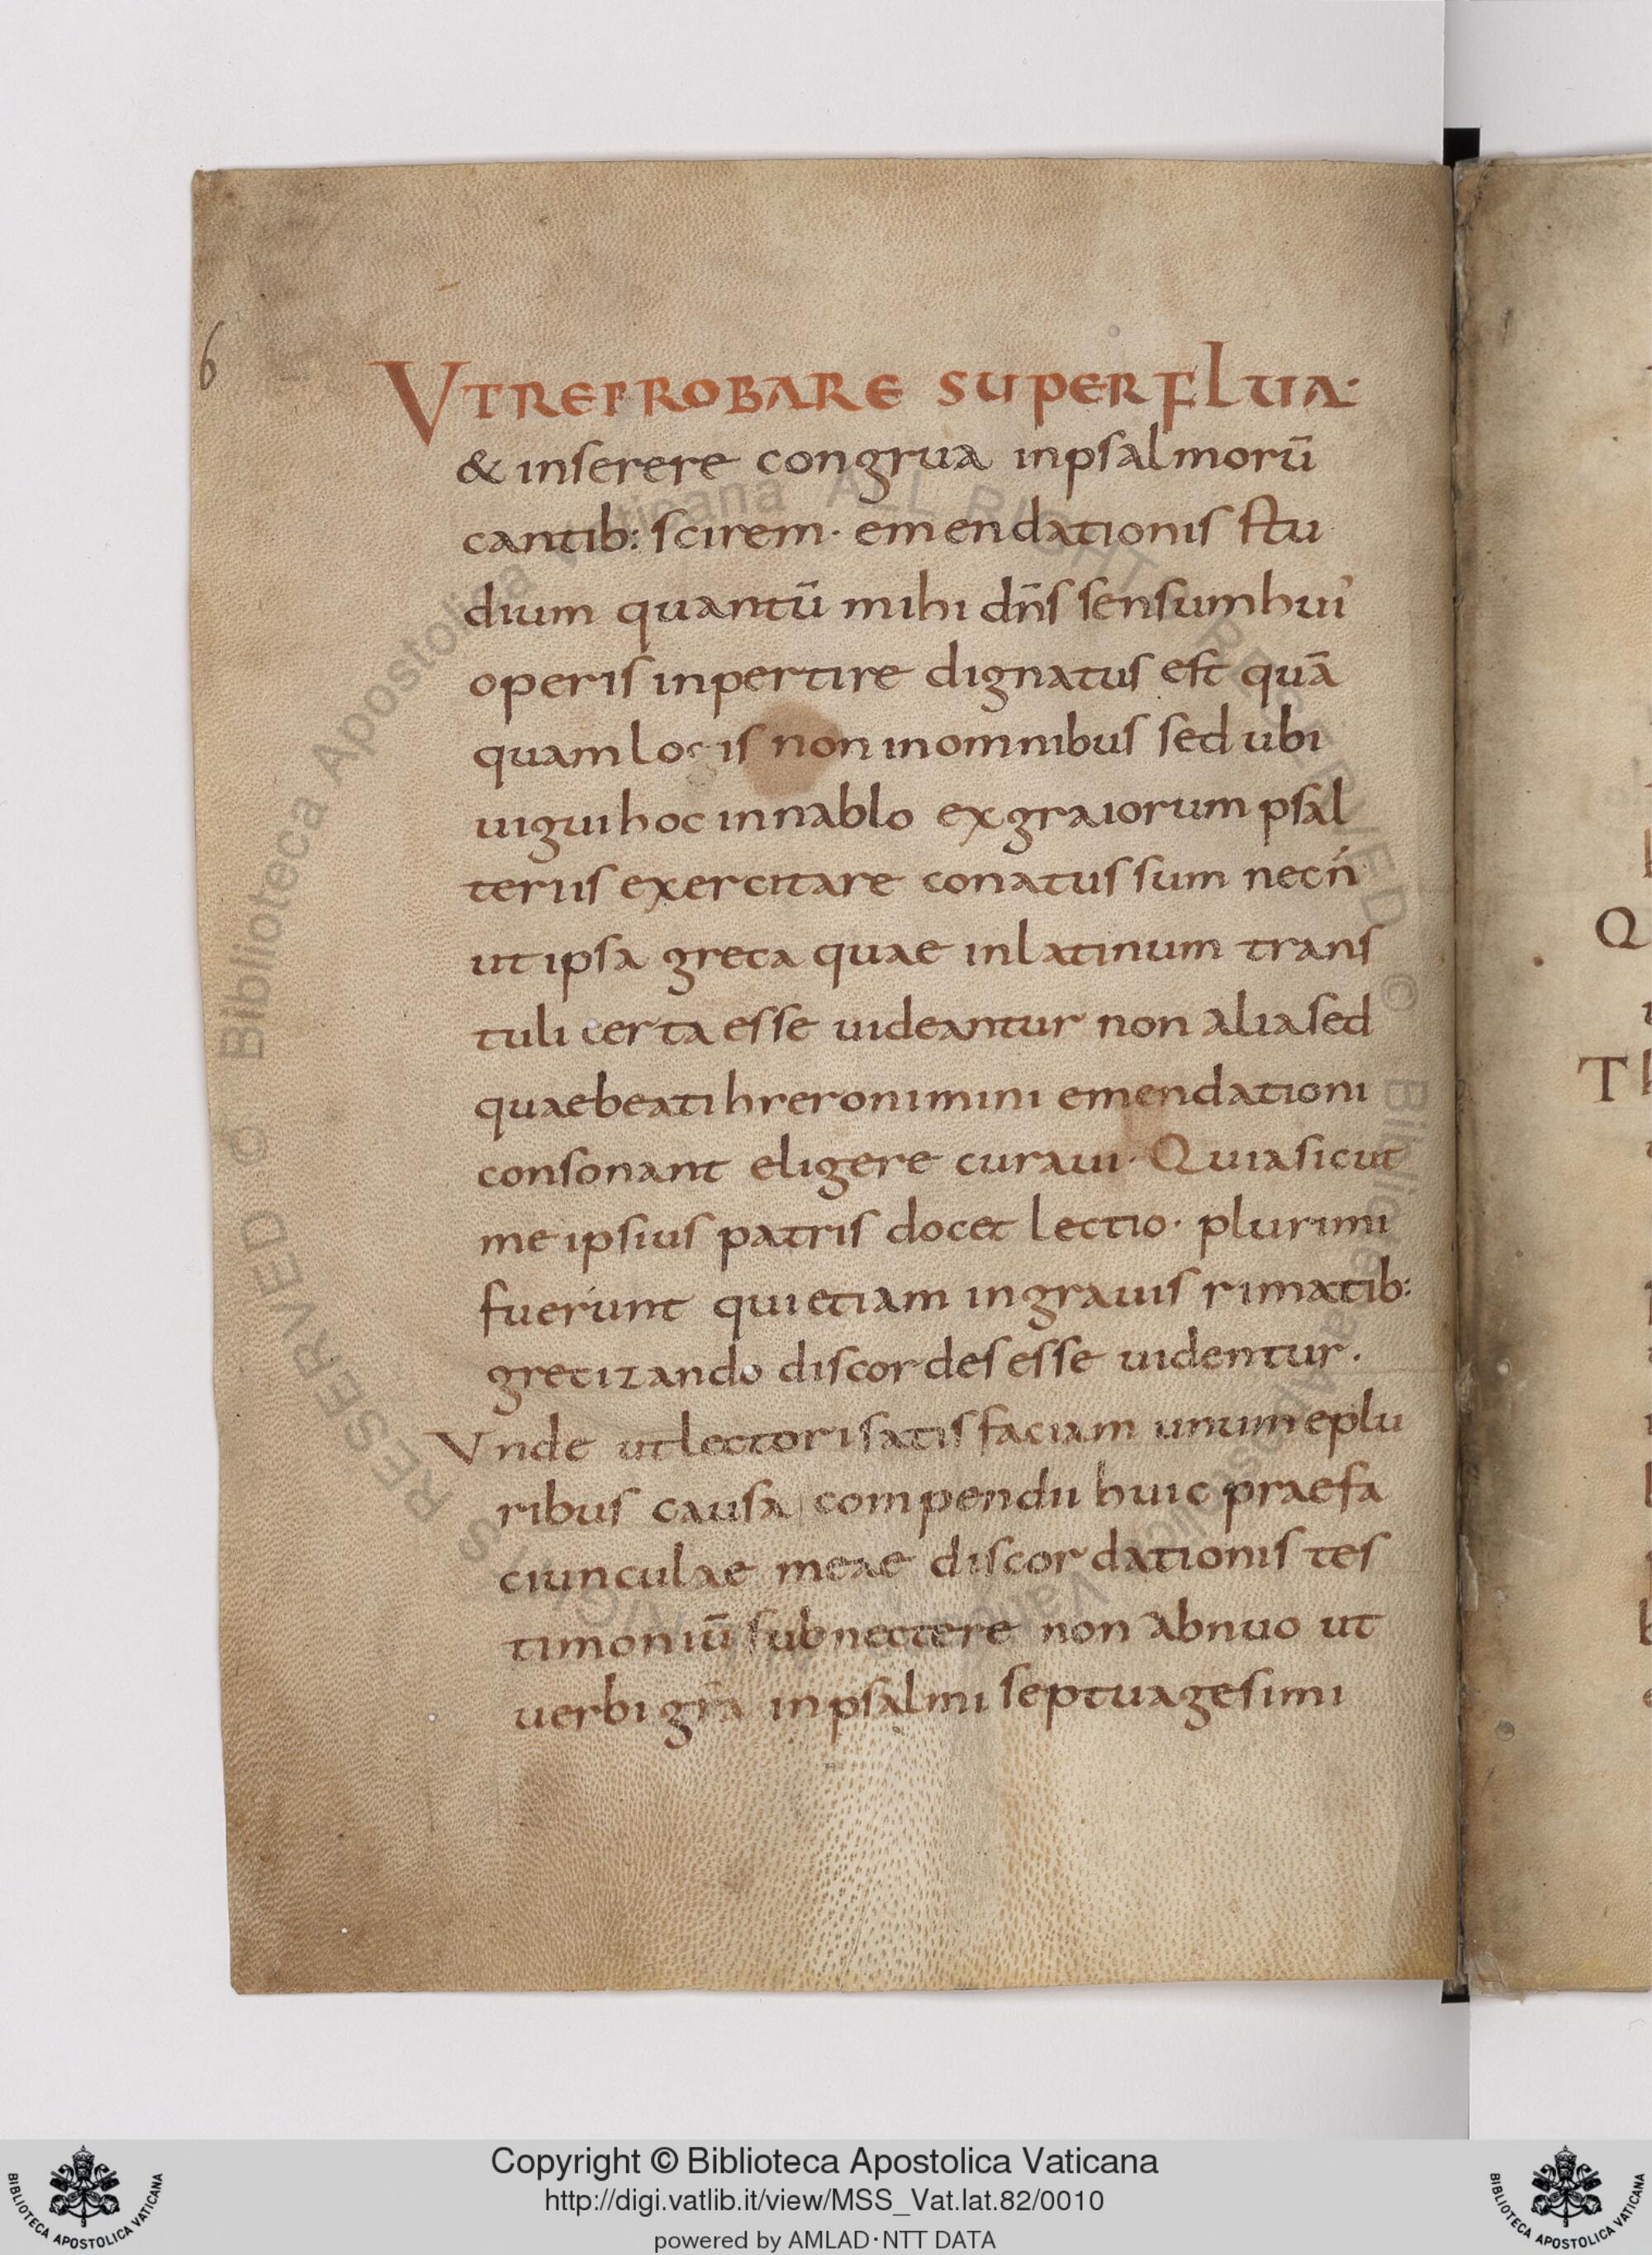 6
VTREPROBARE SUPERFLUA·
& inserere congrua inpsalmorū
cantib: scirem· emendationis stu
dium quantū mihi dn̄s sensumhui᾽
operis inpertire dignatus est quā
quamlocis non inomnibus sed ubi
uiguihoc innablo exgraiorum psal
teriis exercitare conatus sum necń
ut ipsa greca quae inlatinum trans
tuli certa esse uideantur non aliased
quaebeatihreronimini emendationi
consonant eligere curaui· Quiasicut
me ipsius patris docet lectio· plurimi
fuerunt quietiam ingrauis rimatib:
grecizando discordesesse uidentur.
Vnde utlectorisatisfaciam unumeplu
ribus causa compendii huic praefa
ciunculae meae discordationis tes
timoniū subnectere non abnuo ut
uerbi gr̄a inpsalmi septuagesimi
Q
T
© Biblioteca Apostolica Vaticana ALL RIGHTS RESERVED © Biblioteca Apostolica Vaticana ALL RIGHTS RESERVED
Copyright © Biblioteca Apostolica Vaticana
http://digi.vatlib.it/view/MSS_Vat.lat.82/0010
powered by AMLAD·NTT DATA
BIBLIOTECA APOSTOLICA VATICANA
BIBLIOTECA APOSTOLICA VATICANA